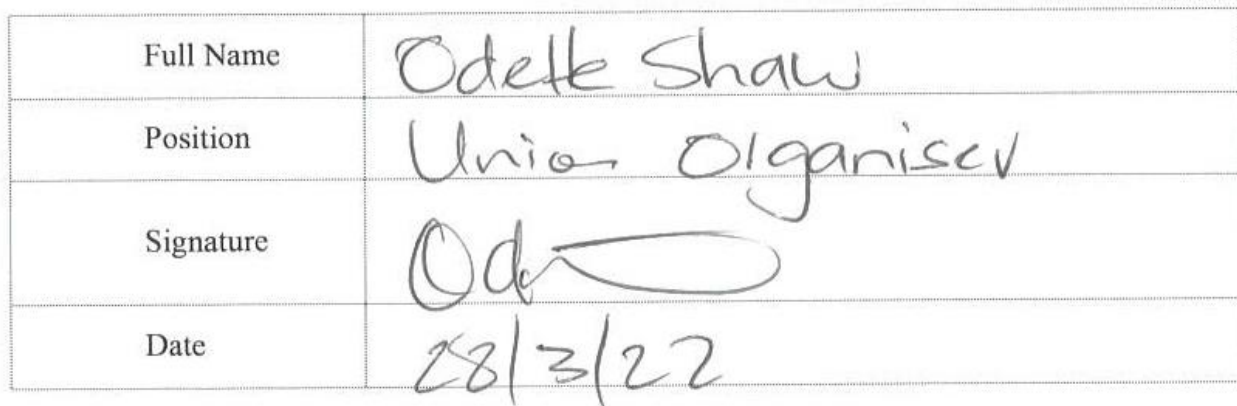 Full Name Odette Shaw
Position Union Organiser
Signature Od
Date 28/3/22